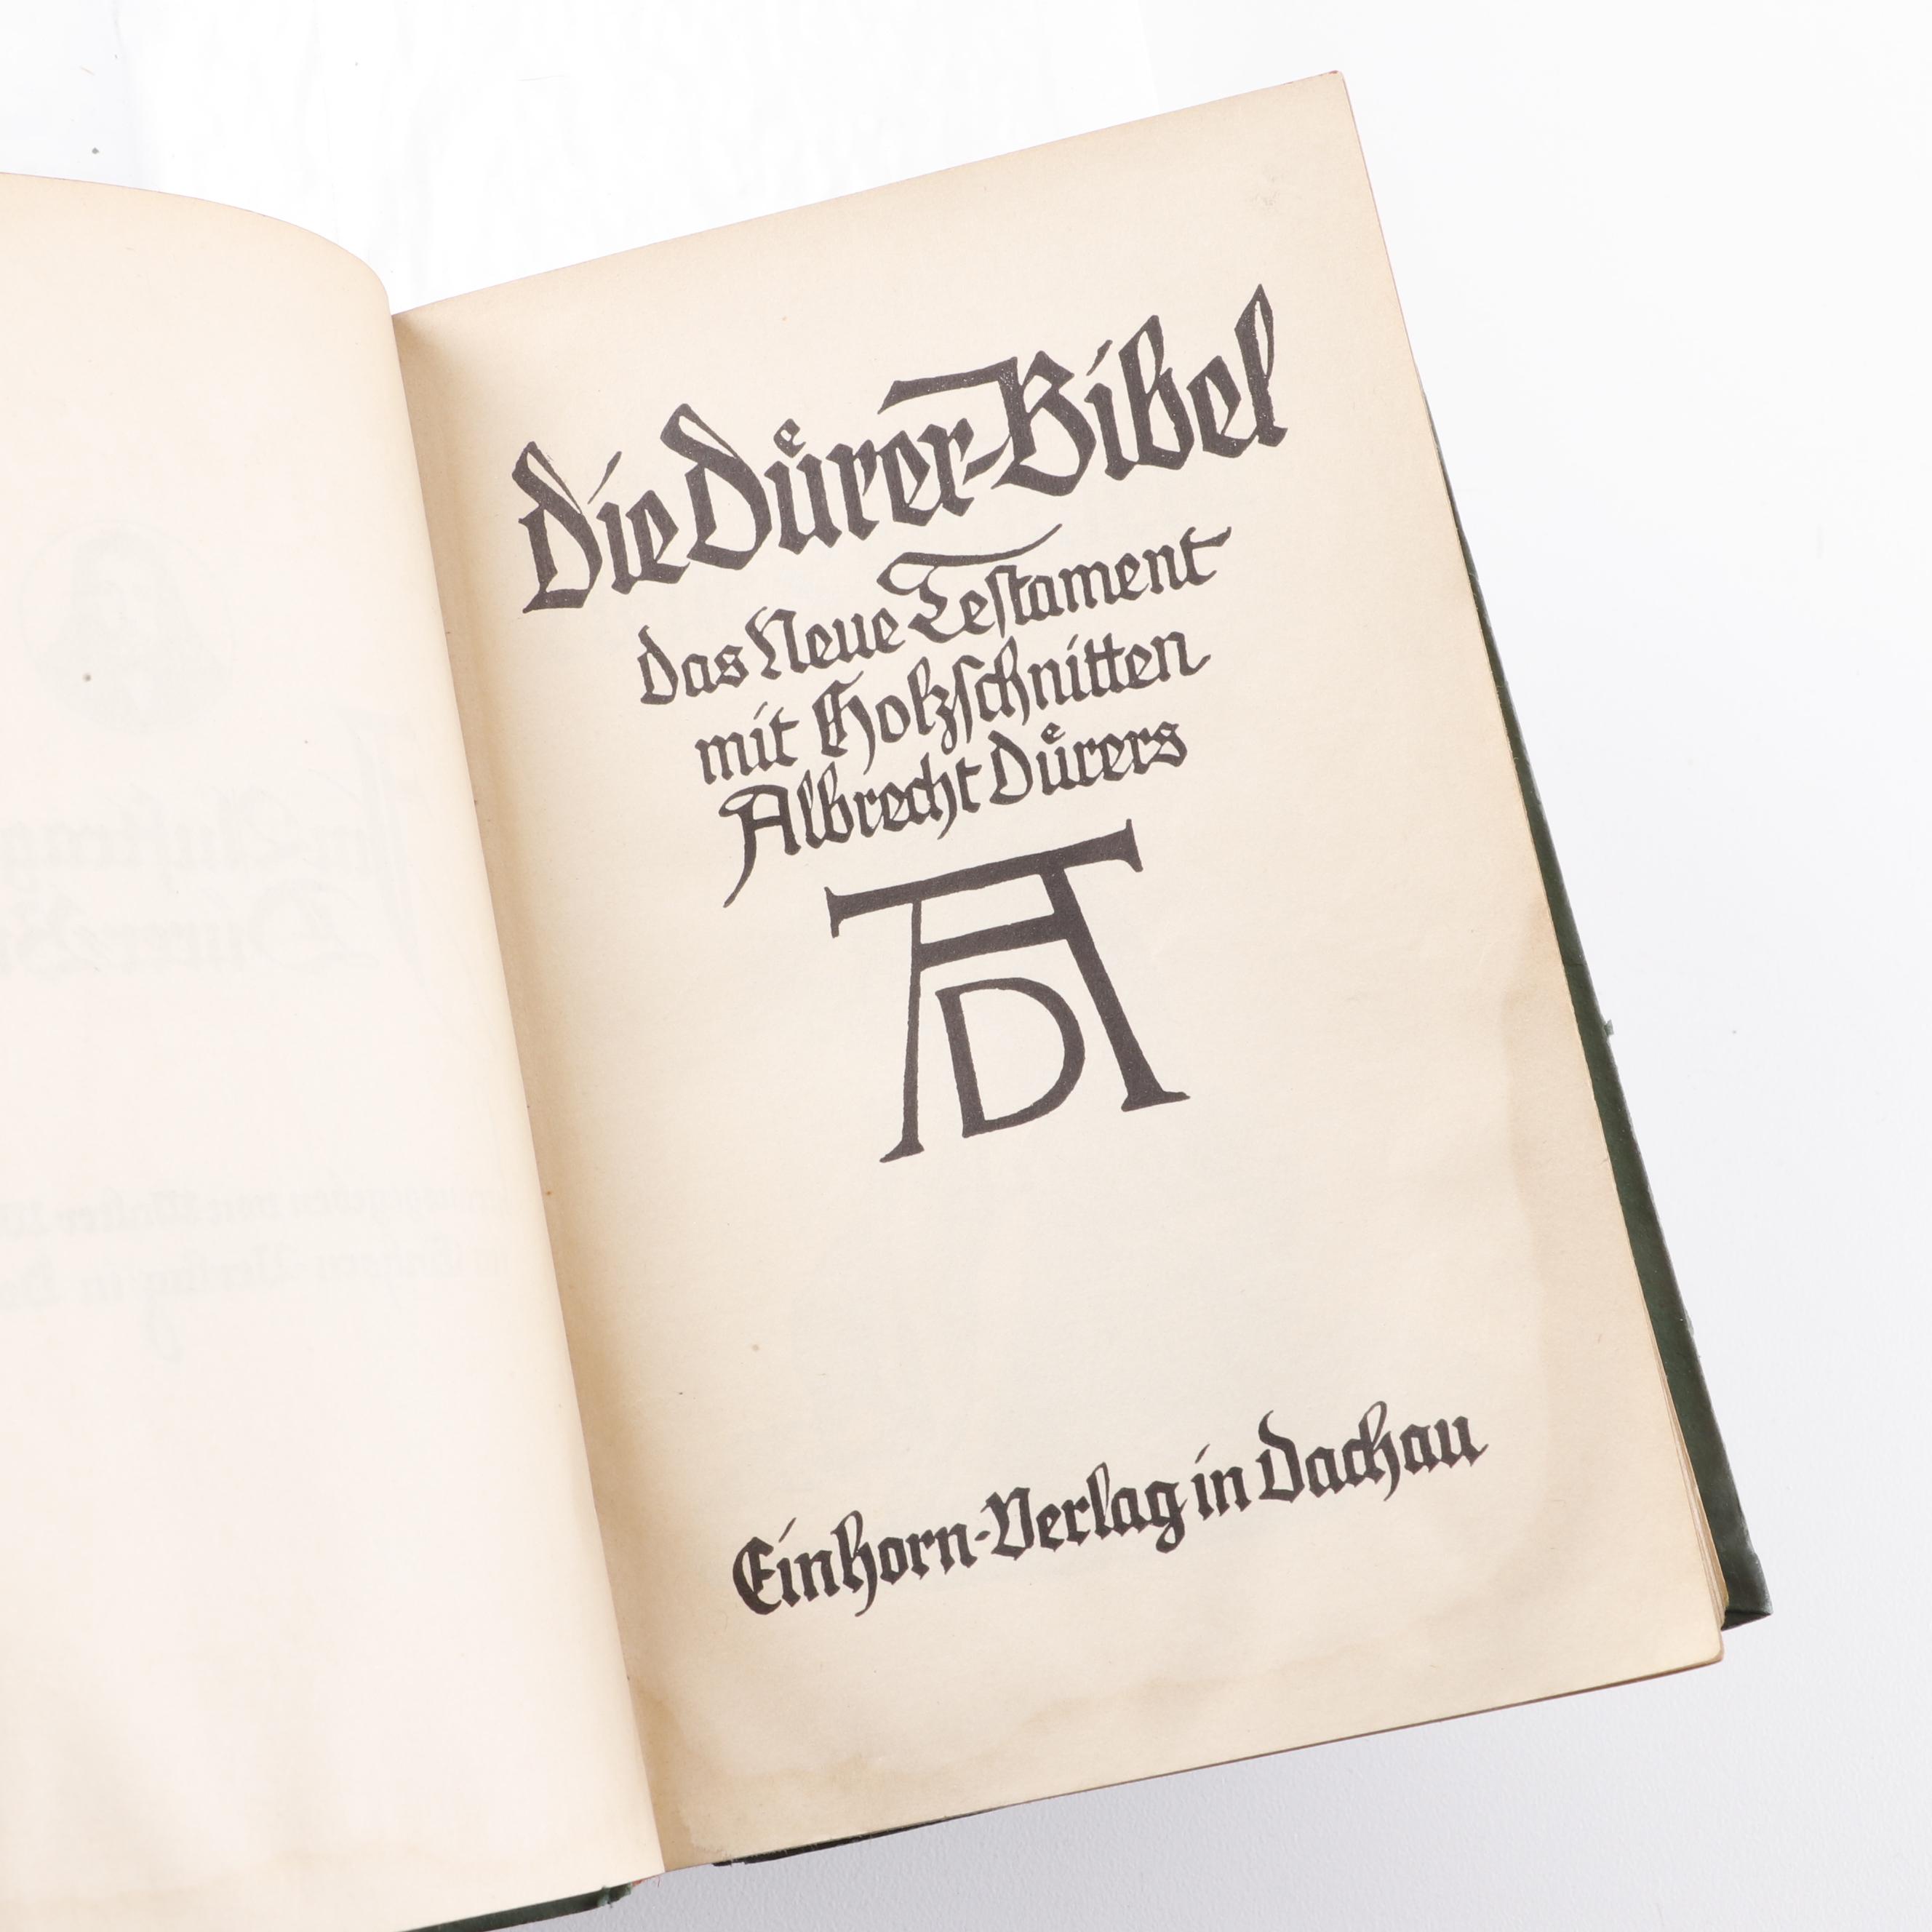 Die Dürer-Bibel
Das Neue Testament
mit Holzschnitten
Albrecht Dürers
AD
Einhorn-Verlag in Dachau